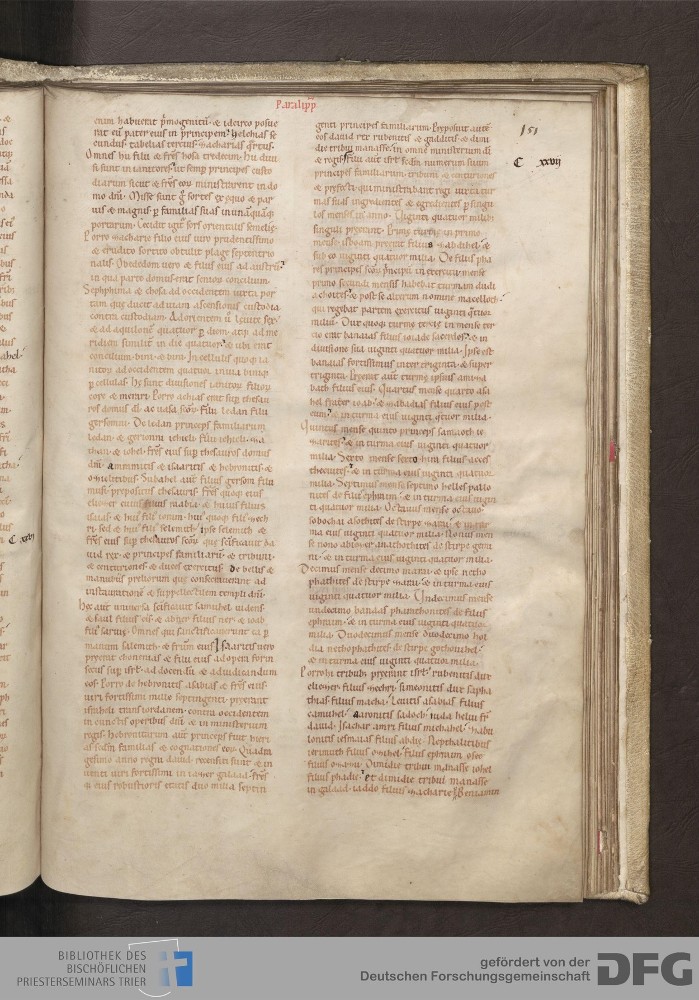 Paralipp
151
C xxvij
enim habuerat p̄mogenitū · & idcirco posue
rat eū pater eius in principem · helchias se
cundus · tabelias tercius · zacharias q̄rtus ·
Omnes hii filii & fr̄s hosa tredecim · Hii diui
si sunt in ianitores · ut semp̄ principes custo
diarum sicut & fr̄s eoꝝ ministrarent in do
mo dn̄i · Misse sunt g̊ sortes ex equo & par
uis & magnis p̄ familias suas in unāquāq;
portarum · Cecidit igit̄ sors orientalis semelie ·
Porro zacharie filio eius uiro prudentissimo
& erudito sortito obtulit plaga septentrio
nalis · Obededom uero & filiis eius ad austrū ·
in qua parte domus erat seniorū concilium ·
Sephphima & hosa ad occidentem iuxta por
tam que ducit ad uiam ascensionis custodia
contra custodiam · Ad orientem ū leuite sex ·
& ad aquilonē quatuor p̄ diem · atq; ad me
ridiem similit̄ in die quatuor · & ubi erat
concilium · bini & bini · In cellulis quoq; ia
nitoꝝ ad occidentem quatuor in uia binīq;
p̄ cellulas · He sunt diuisiones ianitoꝝ filioꝝ
core & merari · Porro achias erat sup̄ thesau
ros domus dī · ac uasa scōꝝ · Filii ledan filii
gersonni · De ledan principes familiarum
ledan · & gersonni iehieli · filii iehieli · za
than · & iohel · fr̄s eius sup̄ thesauros domus
dn̄i · ammiratis & isaaritis & hebronitis &
ozihelitibus · Subahel aut̄ filius gersom filii
musi · prepositus thesauris · fr̄s quoq; eius
eliezer cuius filius raabia · & huius filius
isaias · & hui᾽ filī ioram · hui᾽ quoq; filī zech
ri · sed & hui᾽ filī selemith · ipse selemith &
fr̄s eius sup̄ thesauros scōꝝ · que scificauit da
uid rex · & principes familiarū · & tribuni ·
& centuriones & duces exercitus · de bellis &
manubiis preliorum que consecrauerant ad
instaurationē & suppellectilem templi dn̄i ·
Hec aut̄ uniuersa scificauit samuhel uidens
& saul filius cis · & abner filius ner · & ioab
fili᾽ saruie · Omnes qui sanctificauerunt ea p̄
manum salemith · & fratrū eius · Isaaritis uero
preerat chonenias & filii eius ad opera forin
secus sup̄ isrl̄ · ad docendū & ad iudicandum
eos · Porro de hebronitis asabias & fr̄s eius
uiri fortissimi mille septingenti · preerant
israheli trans iordanem · contra occidentem
in cunctis operibus dn̄i & in ministerium
regis · hebronitarum aut̄ princeps fuit hieri
as scdm̄ familias & cognationes eoꝝ · Quadra
gesimo anno regni dauid · recensiti sunt & in
uenti uiri fortissimi in iazer galaad · fr̄s
q; eius robustioris etatis duo milia septin
genti principes familiarum · Preposuit aut̄ e
os dauid rex rubenitis & gadditis & dimi
die tribui manasse · in omne ministerium dī
& regis · Filii aut̄ isrl̄ scdm̄ numerum suum
principes familiarum · tribuni & centuriones
& prefecti qui ministrabant regi iuxta tur
mas suas ingredientes & egredientes p̄ singu
los menses in anno · Uiginti quatuor milibus
singuli preerant · Prime turme in primo
mense iesboam preerat filius zabdihel · &
sub eo uiginti quatuor milia · De filiis pha
res princeps cunctoꝝ p̄ncipū in exercitu mense
primo · Secundi mensis habebat turmam dudi
a chohites · & post se alterum nomine macelloth ·
qui regebat partem exercitus uiginti q̄tuor
milium · Dux quoq; turme tercie in mense ter
cio erat banaias filius ioiade sacerdos · & in
diuisione sua uiginti quatuor milia · Ipse est
banaias fortissimus inter triginta · & super
triginta · Preerat aut̄ turme ipsius amiza
bath filius eius · Quartus mense quarto asa
hel frater ioab · & zabadias filius eius post
eum · & in turma eius uiginti q̄tuor milia ·
Quintus mense quinto princeps samaoth ie
zarites · & in turma eius uiginti quatuor
milia · Sexto mense sexto hira filius acces
thecuites · & in turma eius uiginti quatuor
milia · Septimus mense septimo helles pallo
nites de filiis ephraim · & in turma eius uigin
ti quatuor milia · Octauus mense octauo ·
sobochai asothites de stirpe zarai · & in tur
ma eius uiginti quatuor milia · Nonus men
se nono abiezer anathothites de stirpe gemi
ni · & in turma eius uiginti quatuor milia ·
Decimus mense decimo marai · & ipse netho
phathites de stirpe zarai · & in turma eius
uiginti quatuor milia · Undecimus mense
undecimo banaas pharathonites de filiis
ephraim · & in turma eius uiginti quatuor
milia · Duodecimus mense duodecimo hol
dia nethophathites de stirpe gothonihel ·
& in turma eius uiginti quatuor milia ·
Porro hi tribubꝫ preerant isrl̄ · rubenitis dux
eliezer filius zechri · simeonitis dux sapha
thias filius maacha · Leuitis asabias filius
camuhel · aaronitis sadoch · iuda heliu fr̄
dauid · Isachar amri filius michahel · zabu
lonitis iesmaias filius abdie · Nepthalitibus
ierimuth filius ozihel · filiis ephraim osee
filius ozaziu · Dimidie tribui manasse iohel
filius phadie · et dimidie tribui manasse
in galaad · iaddo filius zacharie · Beniamin
C xxvi
BIBLIOTHEK DES
BISCHÖFLICHEN
PRIESTERSEMINARS TRIER
gefördert von der
Deutschen Forschungsgemeinschaft
DFG